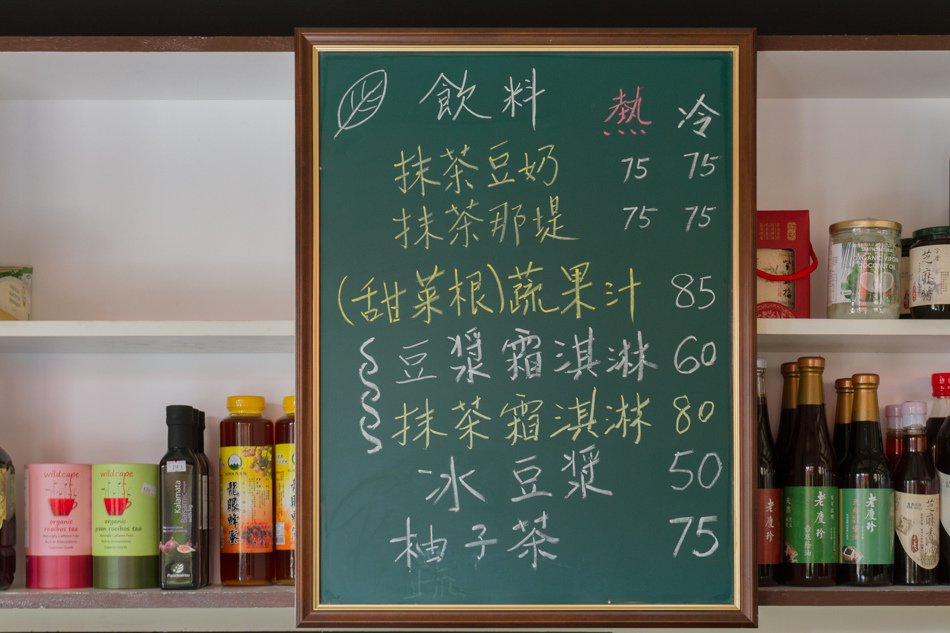 飲料 熱 冷
抹茶豆奶 75 75
抹茶那堤 75 75
(甜菜根)蔬果汁 85
豆漿霜淇淋 60
抹茶霜淇淋 80
冰豆漿 50
柚子茶 75
wildcape
organic
rooibos tea
wildcape
organic
green rooibos tea
Kalamata
龍眼蜂蜜
ORGANIC VIRGIN
COCONUT OIL
芝麻醬
老慶珍
老慶珍